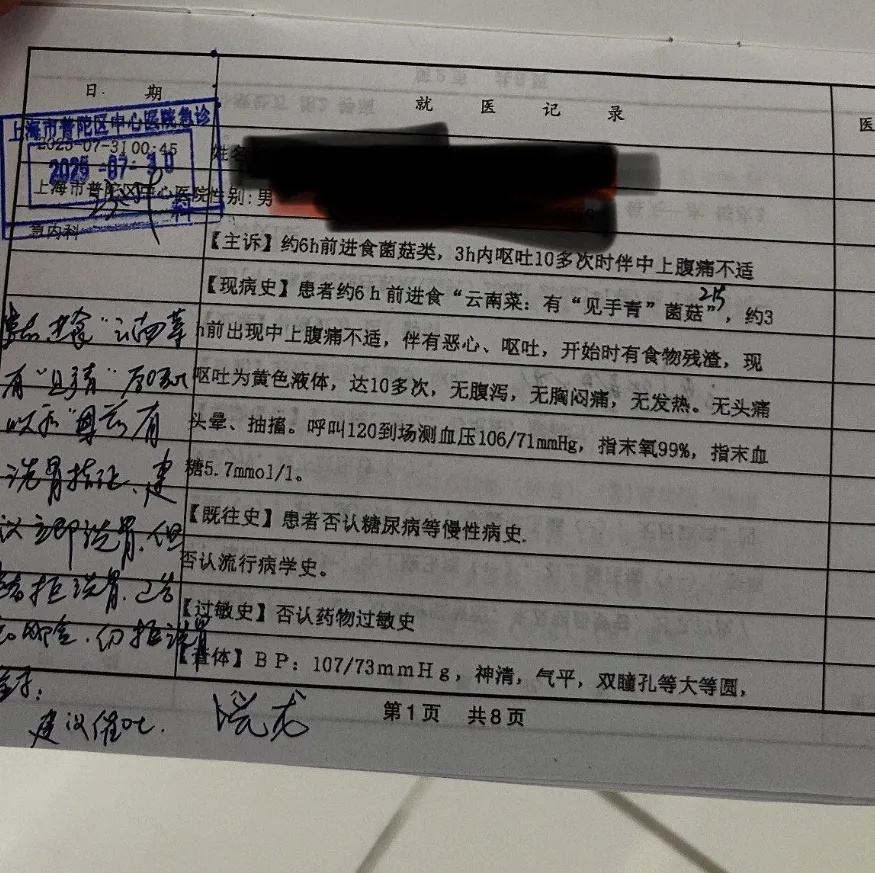 日 期
就 医 记 录
医
上海市普陀区中心医院急诊
2025-07-31 00:45
2025-07-30
上海市普陀区中心医院
科
姓名
性别:男
急内科
【主诉】约6h前进食菌菇类，3h内呕吐10多次时伴中上腹痛不适
【现病史】患者约6h前进食“云南菜：有“见手青”菌菇”，约3
h前出现中上腹痛不适，伴有恶心、呕吐，开始时有食物残渣，现
呕吐为黄色液体，达10多次，无腹泻，无胸闷痛，无发热。无头痛
头晕、抽搐。呼叫120到场测血压106/71mmHg，指末氧99%，指末血
糖5.7mmol/l。
【既往史】患者否认糖尿病等慢性病史.
否认流行病学史。
【过敏史】否认药物过敏史
【查体】BP：107/73mmHg，神清，气平，双瞳孔等大等圆，
“云南菜
有“见手青”
有
洗胃指征，建
议立即洗胃，但
拒洗胃，已告
仍拒洗胃
签字：
建议催吐.
第1页 共8页